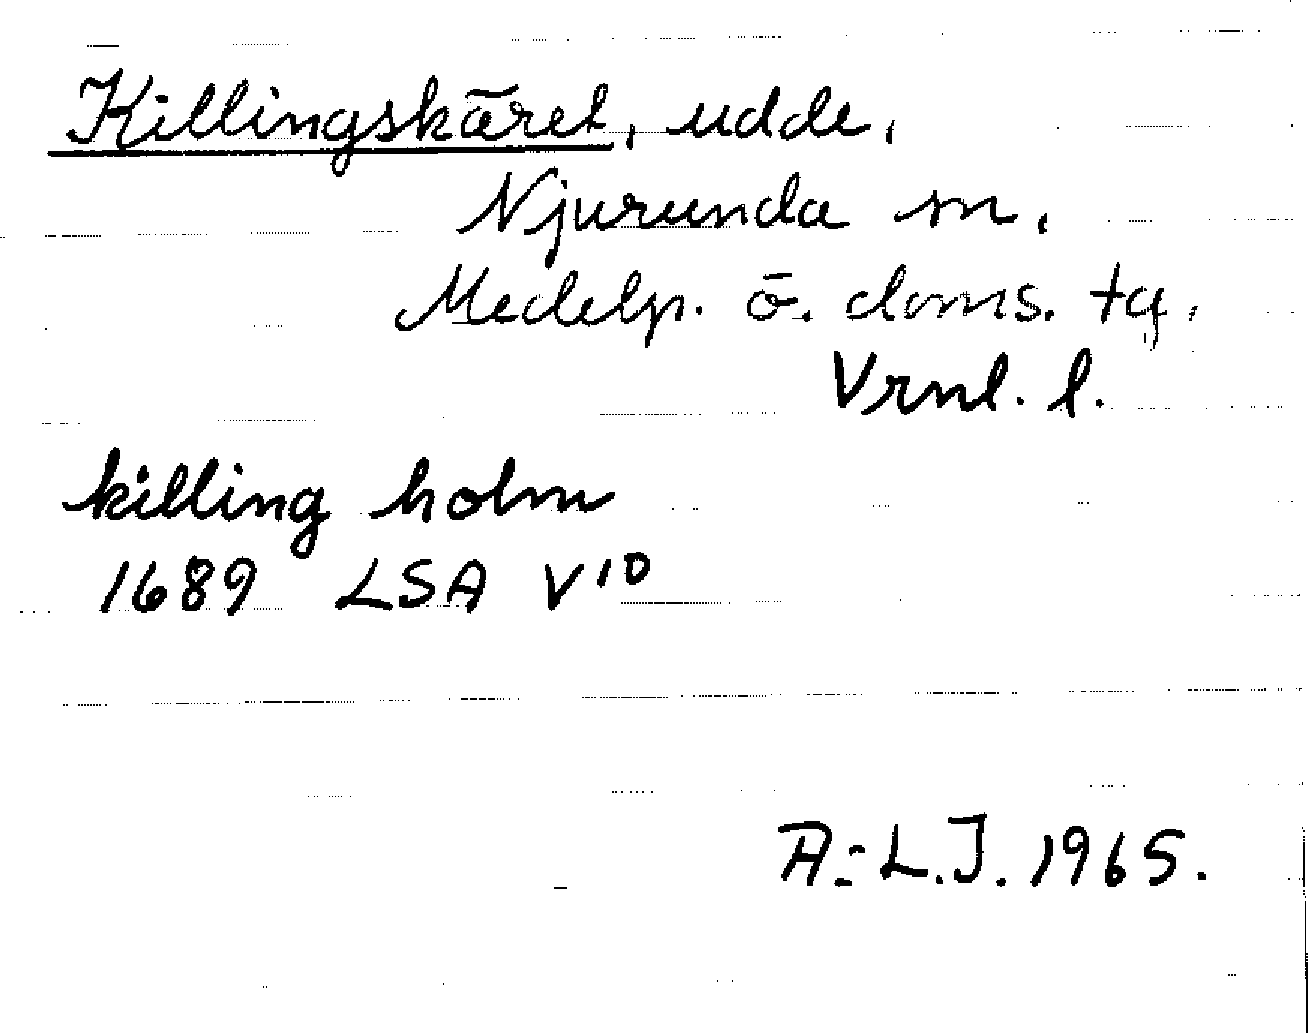 Killingskäret, udde,
Njurunda sn,
Medelp. ö. doms. tg,
Vrnl. l.
killing holm
1689 LSA V10
A.-L.J. 1965.